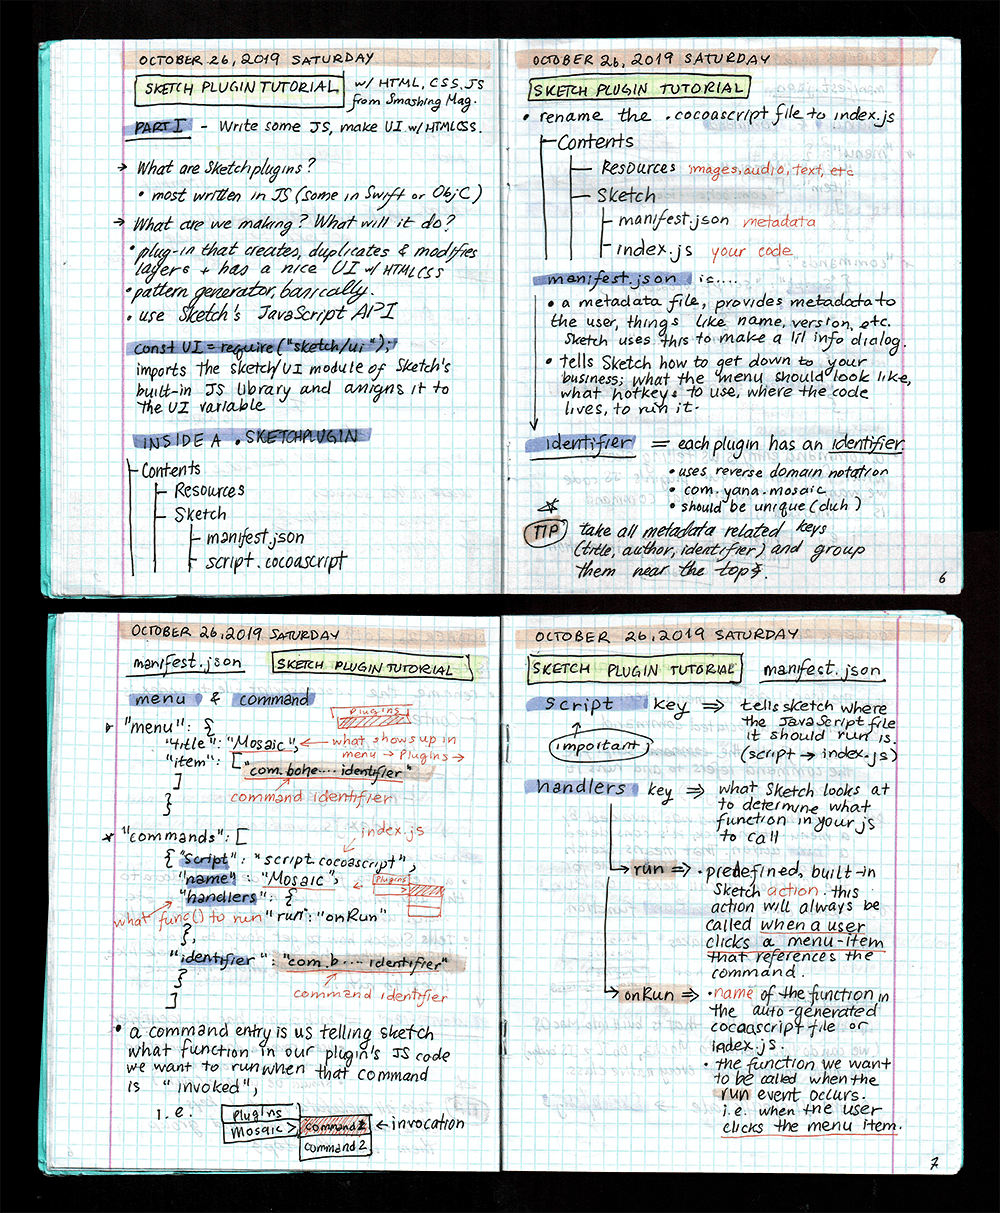 OCTOBER 26, 2019 SATURDAY
SKETCH PLUGIN TUTORIAL
w/ HTML, CSS, JS
from Smashing Mag.
PART I - Write some JS, make UI w/ HTMLCSS.
→ What are Sketchplugins?
• most written in JS (some in Swift or ObjC)
→ What are we making? What will it do?
• plug-in that creates, duplicates & modifies
layers + has a nice UI w/ HTMLCSS
• pattern generator, basically.
• use Sketch's JavaScript API
const UI = require("sketch/ui");
imports the sketch/UI module of Sketch's
built-in JS library and assigns it to
the UI variable
INSIDE A .SKETCHPLUGIN
Contents
Resources
Sketch
manifest.json
script.cocoascript
OCTOBER 26, 2019 SATURDAY
SKETCH PLUGIN TUTORIAL
• rename the .cocoascript file to index.js
Contents
Resources images, audio, text, etc
Sketch
manifest.json metadata
index.js your code
manifest.json is....
• a metadata file, provides metadata to
the user, things like name, version, etc.
Sketch uses this to make a lil info dialog.
• tells Sketch how to get down to your
business; what the menu should look like,
what hotkeys to use, where the code
lives, to run it.
identifier = each plugin has an identifier
• uses reverse domain notation
• com.yana.mosaic
• should be unique (duh)
TIP take all metadata related keys
(title, author, identifier) and group
them near the top
6
OCTOBER 26, 2019 SATURDAY
manifest.json SKETCH PLUGIN TUTORIAL
menu & command
Plugins
"menu": {
"title": "Mosaic", ← what shows up in
menu → Plugins →
"item": [
"com.bohe.... identifier"
]
command identifier
}
"commands": [
index.js
{ "script": "script.cocoascript",
"name": "Mosaic", ← Plugins
"handlers": {
what func() to run "run": "onRun"
},
"identifier": "com.b.... identifier"
}
command identifier
]
• a command entry is us telling sketch
what function in our plugin's JS code
we want to run when that command
is "invoked",
i.e.
Plugins
Mosaic > command 1 ← invocation
command 2
OCTOBER 26, 2019 SATURDAY
SKETCH PLUGIN TUTORIAL manifest.json
script key ⇒ tells sketch where
the JavaScript file
it should run is.
(script → index.js)
important
handlers key ⇒ what Sketch looks at
to determine what
function in your js
to call
run ⇒ • predefined, built-in
Sketch action. this
action will always be
called when a user
clicks a menu-item
that references the
command.
onRun ⇒ • name of the function in
the auto-generated
cocoascript file or
index.js.
• the function we want
to be called when the
run event occurs.
i.e. when the user
clicks the menu item.
7